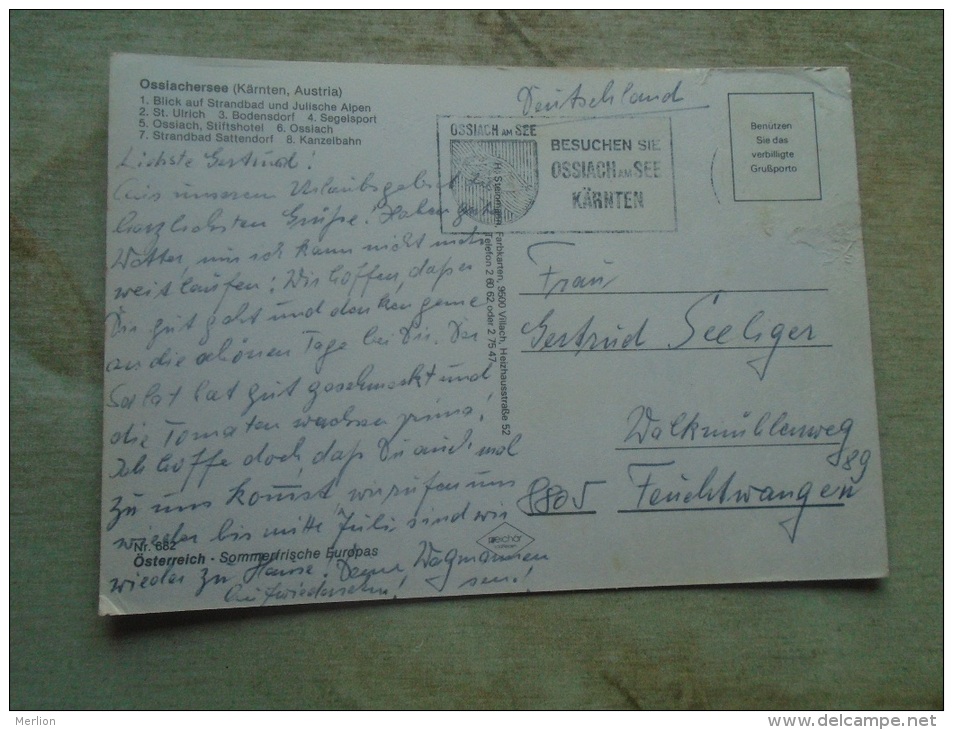 Ossiachersee (Kärnten, Austria)
1. Blick auf Strandbad und Julische Alpen
2. St. Ulrich 3. Bodensdorf 4. Segelsport
5. Ossiach, Stiftshotel 6. Ossiach
7. Strandbad Sattendorf 8. Kanzelbahn
Liebste Gertrud!
Aus unserem Urlaubsgebiet
herzlichsten Grüße! Haben
Wetter, nur ich kann nicht mehr
weit laufen! Wir hoffen, daß es
Dir gut geht und denken gerne
an die schönen Tage bei Dir. Der
Salat hat gut geschmeckt und
die Tomaten wachsen prima!
Ich hoffe doch, daß Du auch mal
zu uns kommst, wir rufen uns
wieder bis mitte Juli sind wir
wieder zu Hause!
Auf wiedersehn!
Nr. 682
Österreich - Sommerfrische Europas
H. Steinmann, Farbkarten, 9500 Villach, Heizhausstraße 52
Telefon 2 60 62 oder 2 75 47
Deutschland
OSSIACH AM SEE
BESUCHEN SIE
OSSIACH AM SEE
KÄRNTEN
Benützen
Sie das
verbilligte
Grußporto
Frau
Gertrud Seeliger
Walkmühlenweg
89
8805 Feuchtwangen
Merlion
http://www.delcampe.net